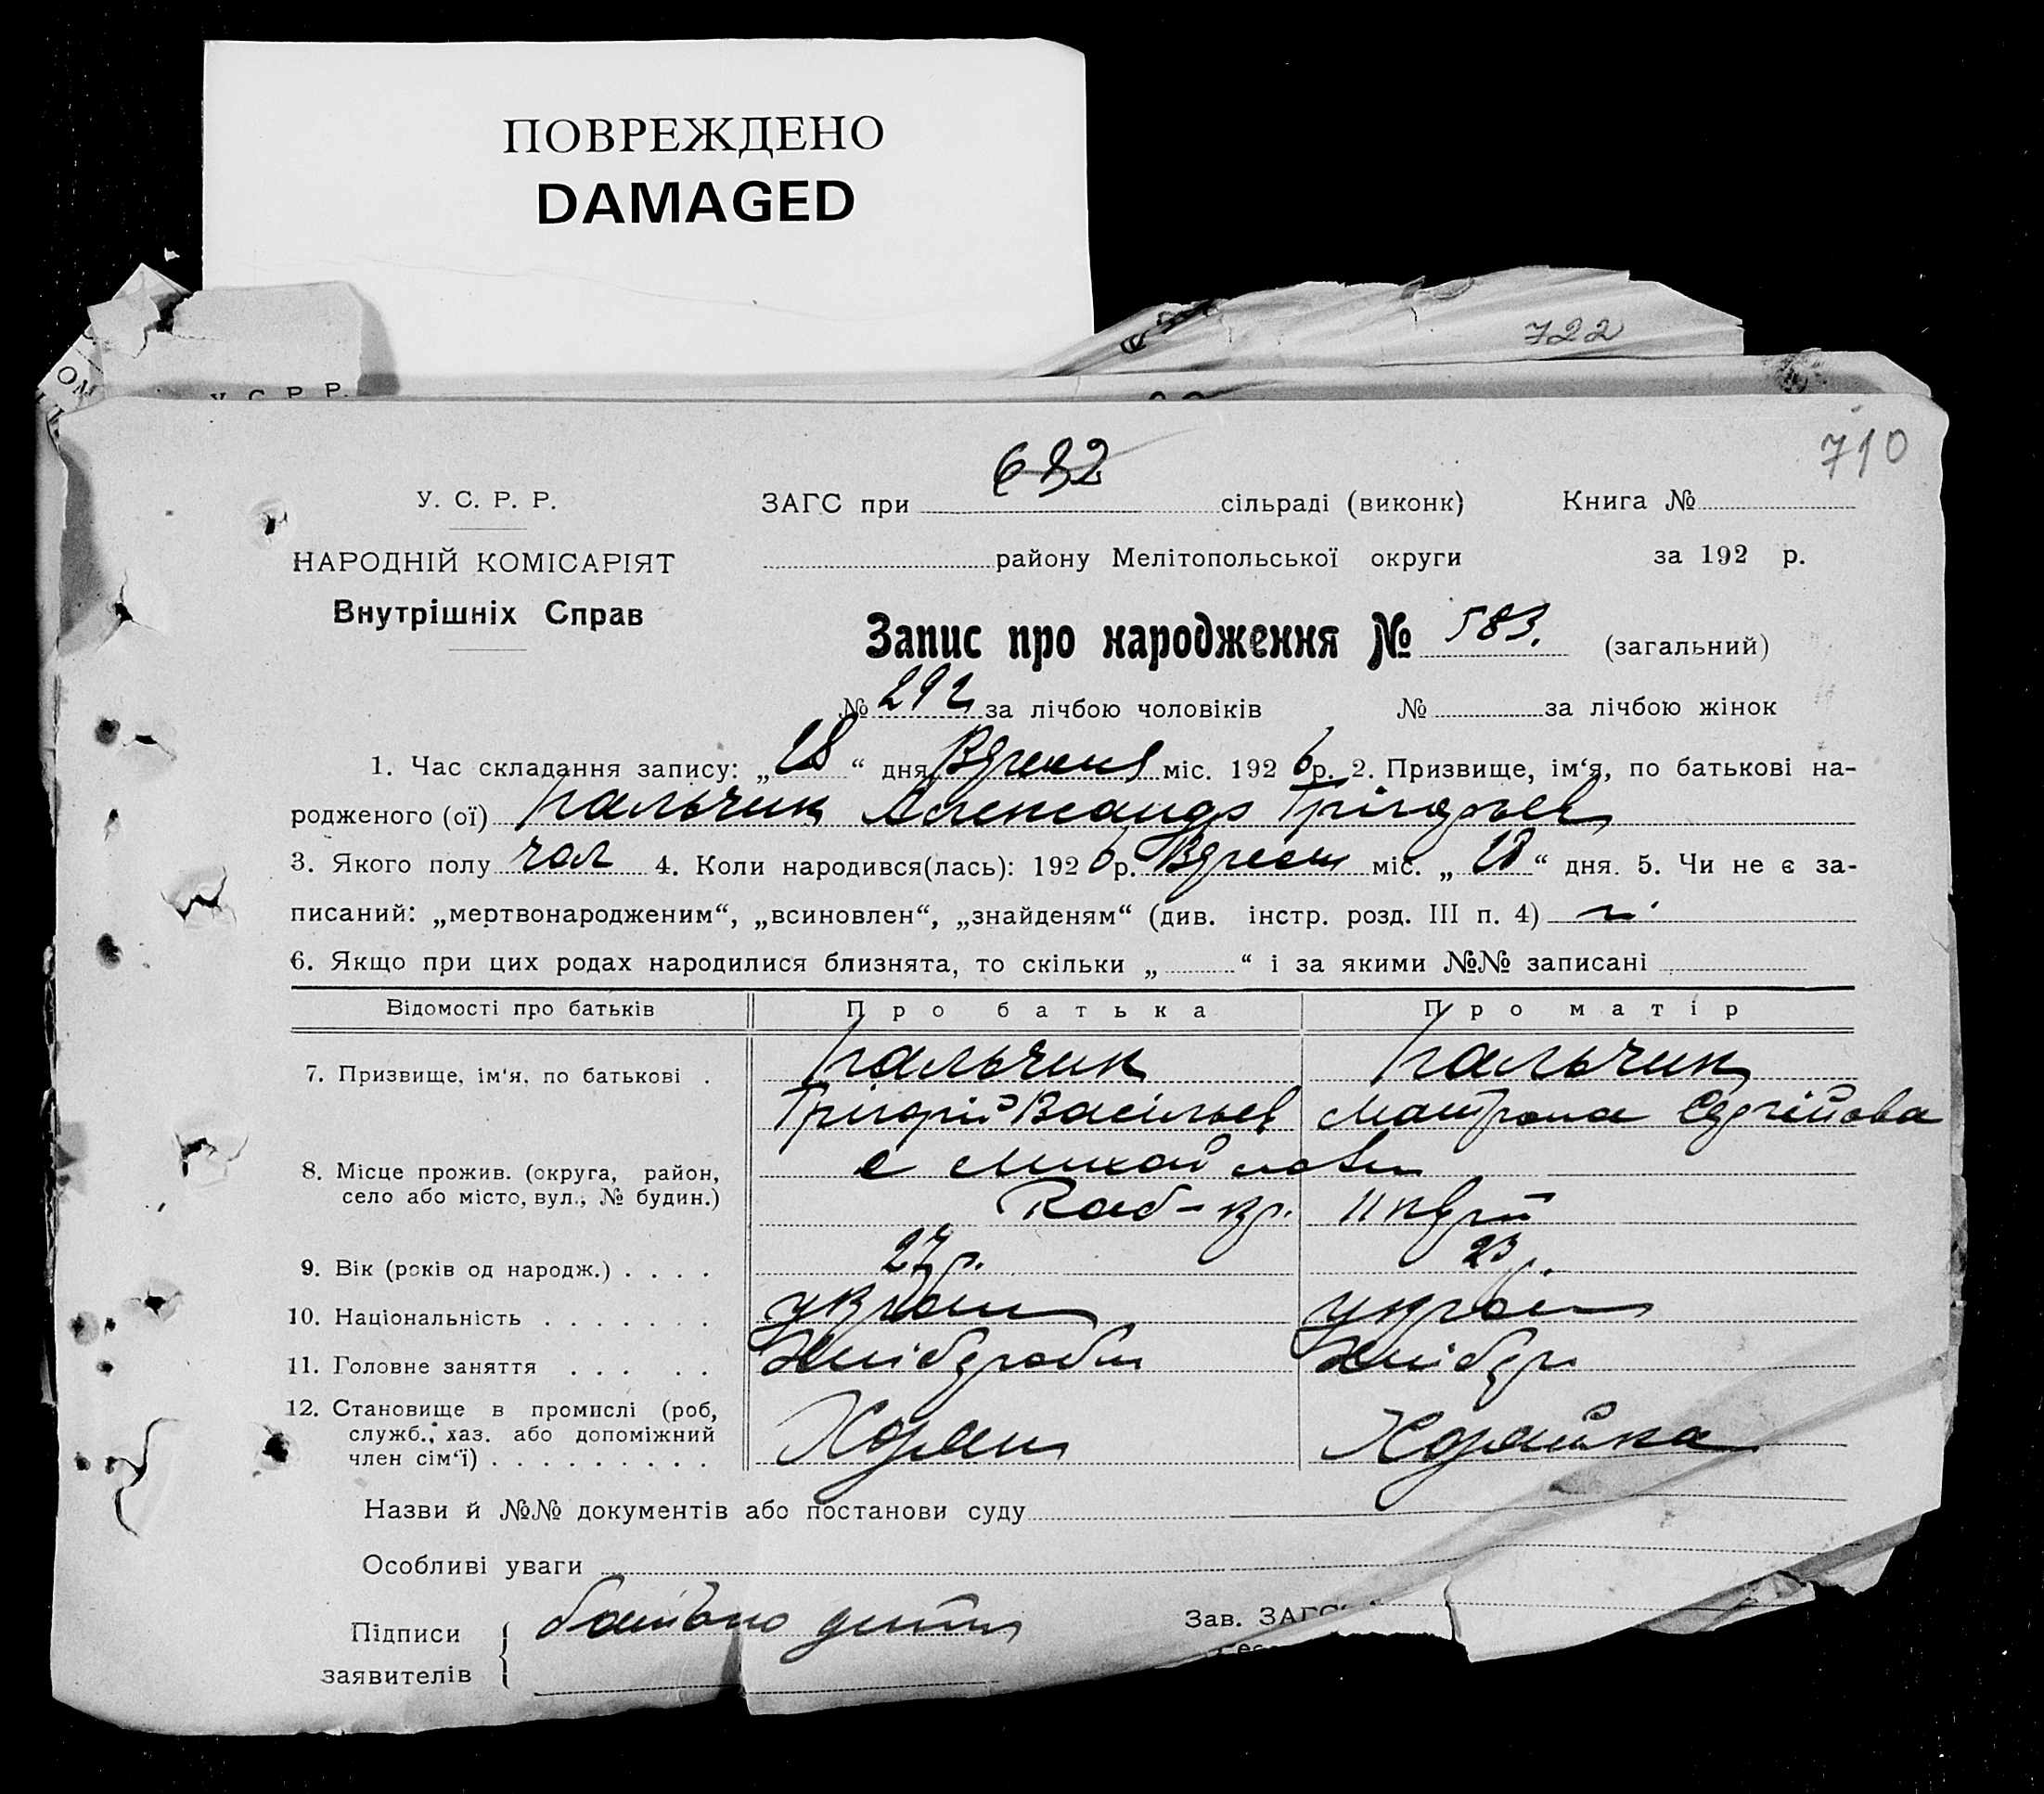 ПОВРЕЖДЕНО
DAMAGED
722
У. С. Р. Р.
710
632
У. С. Р. Р.
ЗАГС при сільраді (виконк) Книга №
НАРОДНІЙ КОМІСАРІЯТ
района Мелітопольської округи за 192 р.
Внутрішніх Справ
Запис про народження № 583. (загальний)
№ 292 за лічбою чоловіків № за лічбою жінок
1. Час складання запису: „28“ дня Вересня міс. 1926 р. 2. Призвище, ім‘я, по батькові на-
родженого (ої) Пальчик Александр Грігорьев
3. Якого полу чол 4. Коли народився(лась): 1926 р. Верес міс. „18“ дня. 5. Чи не є за-
писаний: „мертвонародженим“, „всиновлен“, „знайденям“ (див. інстр. розд. III п. 4)
6. Якщо при цих родах народилися близнята, то скільки „ “ і за якими №№ записані
Відомості про батьків Про батька Про матір
7. Призвище, ім‘я, по батькові . Пальчик Пальчик
Грігорій Васильев Матрона Сергійова
8. Місце прожив. (округа, район,
село або місто, вул., № будин.)
с Михайловка
9. Вік (років од народж.) . . . . 27 р. 23 р.
10. Національність . . . . . . . украін украін
11. Головне заняття . . . . . Хліборобн Хлібор
12. Становище в промислі (роб,
служб., хаз. або допоміжний
член сім‘ї) . . . . . . . . .
Назви й №№ документів або постанови суду
Особливі уваги
Підписи
заявителів
батько
Зав. ЗАГС